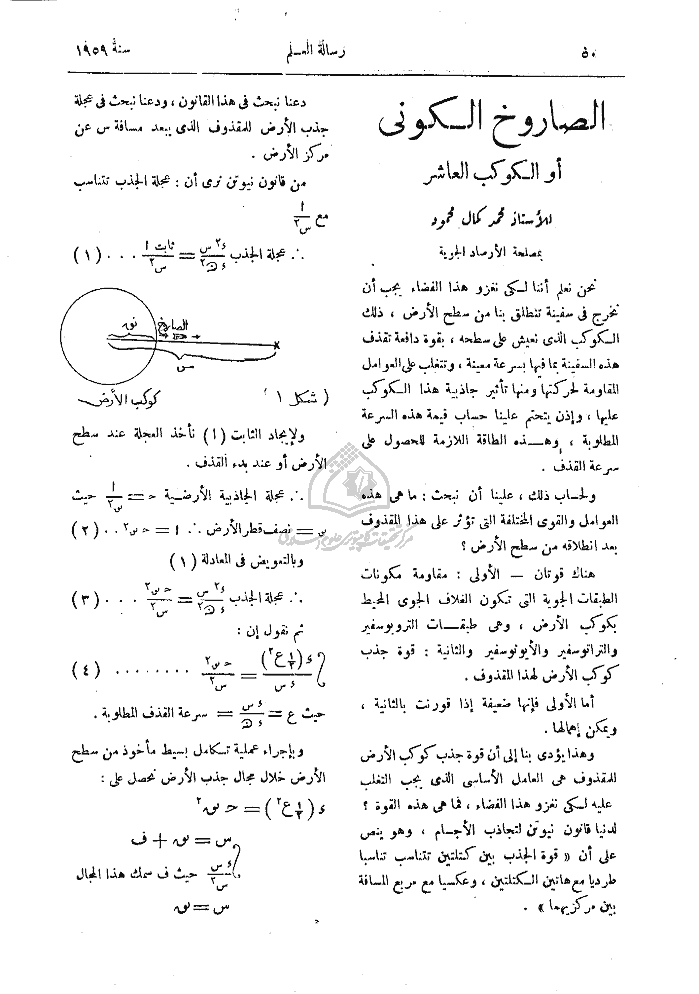 ٥٠
رسالة المعلم
سنة ١٩٥٩
الصاروخ الكونى
أو الكوكب العاشر
للأستاذ محمد كمال محمود
بمصلحة الأرصاد الجوية
نحن نعلم أننا لكى نغزو هذا الفضاء يجب أن
نخرج فى سفينة تنطلق بنا من سطح الأرض ، ذلك
الكوكب الذى نعيش على سطحه ، بقوة دافعة تقذف
هذه السفينة بما فيها بسرعة معينة ، وتتغلب على العوامل
المقاومة لحركتها ومنها تأثير جاذبية هذا الكوكب
عليها ، وإذن يتحتم علينا حساب قيمة هذه السرعة
المطلوبة ، وهذه الطاقة اللازمة للحصول على
سرعة القذف .
ولحساب ذلك ، علينا أن نبحث : ما هى هذه
العوامل والقوى المختلفة التى تؤثر على هذا المقذوف
بعد انطلاقه من سطح الأرض ؟
هناك قوتان — الأولى : مقاومة مكونات
الطبقات الجوية التى تكون الغلاف الجوى المحيط
بكوكب الأرض ، وهى طبقات التروبوسفير
والتراتوسفير والأيونوسفير والثانية : قوة جذب
كوكب الأرض لهذا المقذوف .
أما الأولى فإنها ضعيفة إذا قورنت بالثانية ،
ويمكن إهمالها .
وهذا يؤدى بنا إلى أن قوة جذب كوكب الأرض
للمقذوف هى العامل الأساسى الذى يجب التغلب
عليه لكى نغزو هذا الفضاء ، فما هى هذه القوة ؟
لدنيا قانون نيوتن لتجاذب الأجسام ، وهو ينص
على أن « قوة الجذب بين كتلتين تتناسب تناسبا
طرديا مع هاتين الكتلتين ، وعكسيا مع مربع المسافة
بين مركزيهما » .
دعنا نبحث فى هذا القانون ، ودعنا نبحث فى عجلة
جذب الأرض للمقذوف الذى يبعد مسافة س عن
مركز الأرض .
من قانون نيوتن نرى أن : عجلة الجذب تتناسب
مع ١/س٢
∴ عجلة الجذب ء٢س/ءه٢ = ثابت ١/س٢ . . . (١)
الصاروخ
نق
س
( شكل ١ )
كوكب الأرض
ولإيجاد الثابت (١) نأخذ العجلة عند سطح
الأرض أو عند بدء القذف .
∴ عجلة الجاذبية الأرضية ح = ١/س٢ حيث
س = نصف قطر الأرض ∴ ١ = ح س٢ . . (٢)
وبالتعويض فى المعادلة (١)
∴ عجلة الجذب ء٢س/ءه٢ = ح س٢/س٢ . . . (٣)
ثم نقول إن :
ء(١/٢ع٢)/ءس = ح س٢/س٢ . . . . . . . . (٤)
حيث ع = ءس/ءه = سرعة القذف المطلوبة .
وبإجراء عملية تكامل بسيط مأخوذ من سطح
الأرض خلال مجال جذب الأرض نحصل على :
ء(١/٢ع٢) = ح نق٢
س = نق + ف
ءس/س٢ حيث ف سمك هذا المجال
س = نق